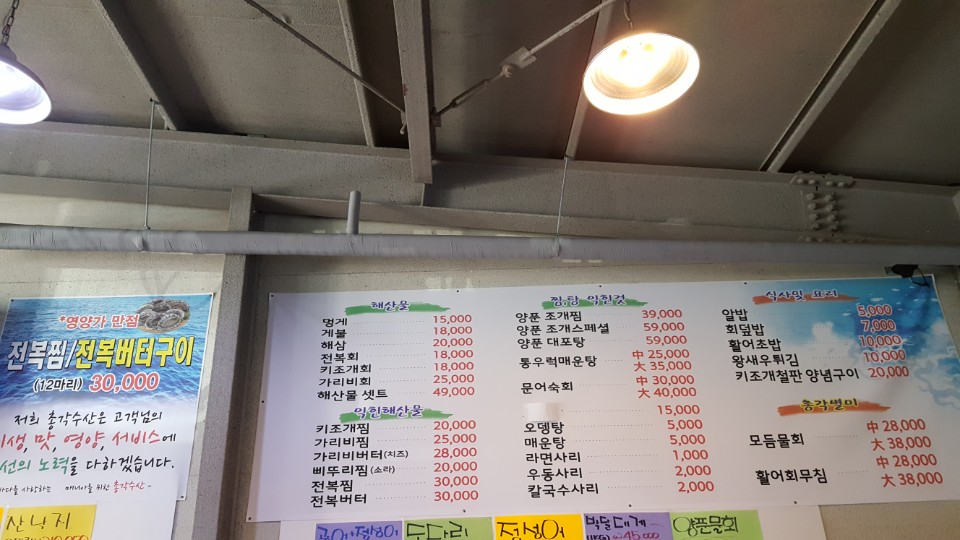 *영양가 만점
전복찜/전복버터구이
(12마리) 30,000
저희 총각수산은 고객님의
맛, 영양, 서비스에
노력을 다하겠습니다.
총각수산-
산낙지
해산물
멍게 15,000
게불 18,000
해삼 20,000
전복회 18,000
키조개회 18,000
가리비회 25,000
해산물 셋트 49,000
익힌해산물
키조개찜 20,000
가리비찜 25,000
가리비버터(치즈) 28,000
삐뚜리찜(소라) 20,000
전복찜 30,000
전복버터 30,000
찜,탕 익힌것
양푼 조개찜 39,000
양푼 조개스페셜 59,000
양푼 대포탕 59,000
통우럭매운탕 中 25,000
大 35,000
문어숙회 中 30,000
大 40,000
15,000
오뎅탕 5,000
매운탕 5,000
라면사리 1,000
우동사리 2,000
칼국수사리 2,000
식사및 요리
알밥 5,000
회덮밥 7,000
활어초밥 10,000
왕새우튀김 10,000
키조개철판 양념구이 20,000
총각별미
모듬물회 中 28,000
大 38,000
활어회무침 中 28,000
大 38,000
도다리
양푼물회
45,000